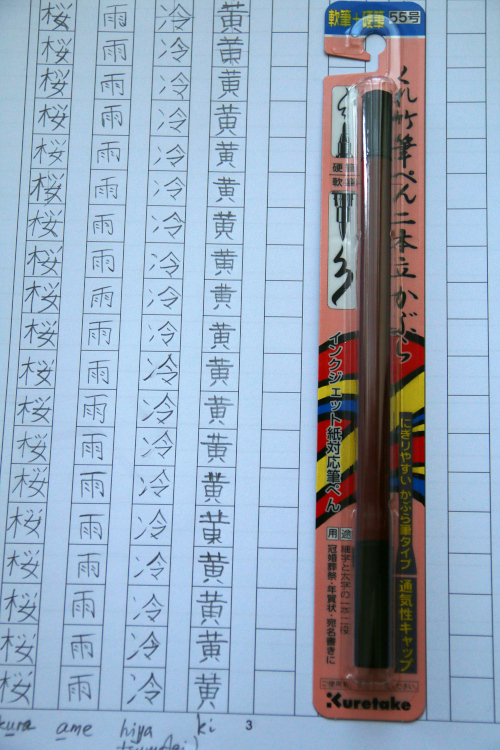 桜桜桜桜桜桜桜桜桜桜桜桜桜桜桜桜桜桜桜
雨雨雨雨雨雨雨雨雨雨雨雨雨雨雨雨雨雨雨
冷冷冷冷冷冷冷冷冷冷冷冷冷冷冷冷冷冷冷
黄黄黄黄黄黄黄黄黄黄黄黄黄黄黄黄黄黄黄
kura ame hiya ki 3
軟筆+硬筆 55号
くれ竹筆ぺん二本立かぶら
硬筆
軟筆
インクジェット紙対応筆ぺん
にぎりやすいかぶら筆タイプ
通気性キャップ
用途
細字と太字の一本二役
冠婚葬祭・年賀状・宛名書きに
Kuretake